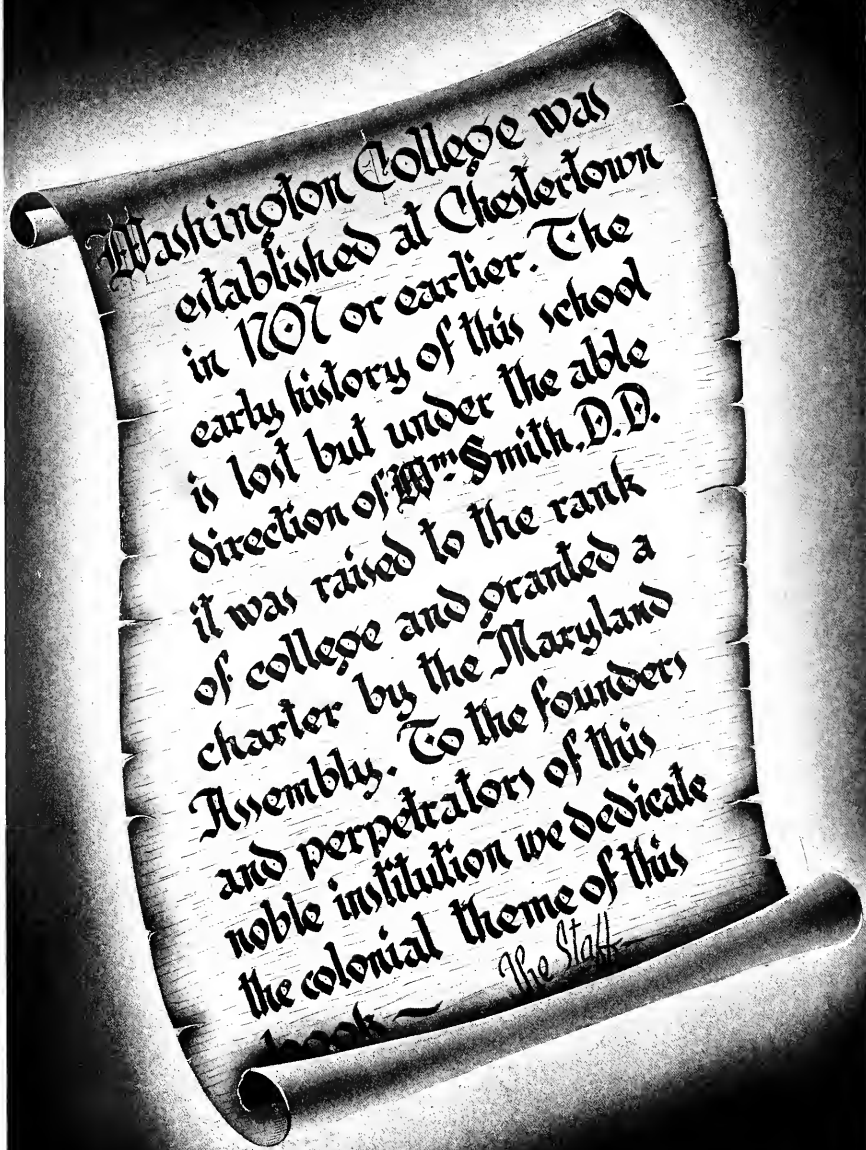 Washington College was
established at Chestertown
in 1707 or earlier. The
early history of this school
is lost but under the able
direction of Wm Smith, D.D.
it was raised to the rank
of college and granted a
charter by the Maryland
Assembly. To the founders
and perpetrators of this
noble institution we dedicate
the colonial theme of this
book — The Staff